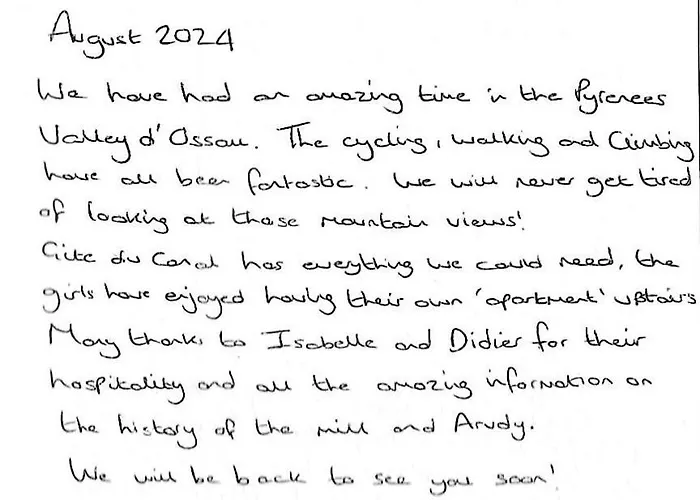 August 2024
We have had an amazing time in the Pyrenees
Valley d'Ossau. The cycling, walking and Climbing
have all been fantastic. We will never get tired
of looking at those mountain views!
Gite du Canal has everything we could need, the
girls have enjoyed having their own 'apartment' upstairs
Many thanks to Isabelle and Didier for their
hospitality and all the amazing information on
the history of the mill and Arudy.
We will be back to see you soon!